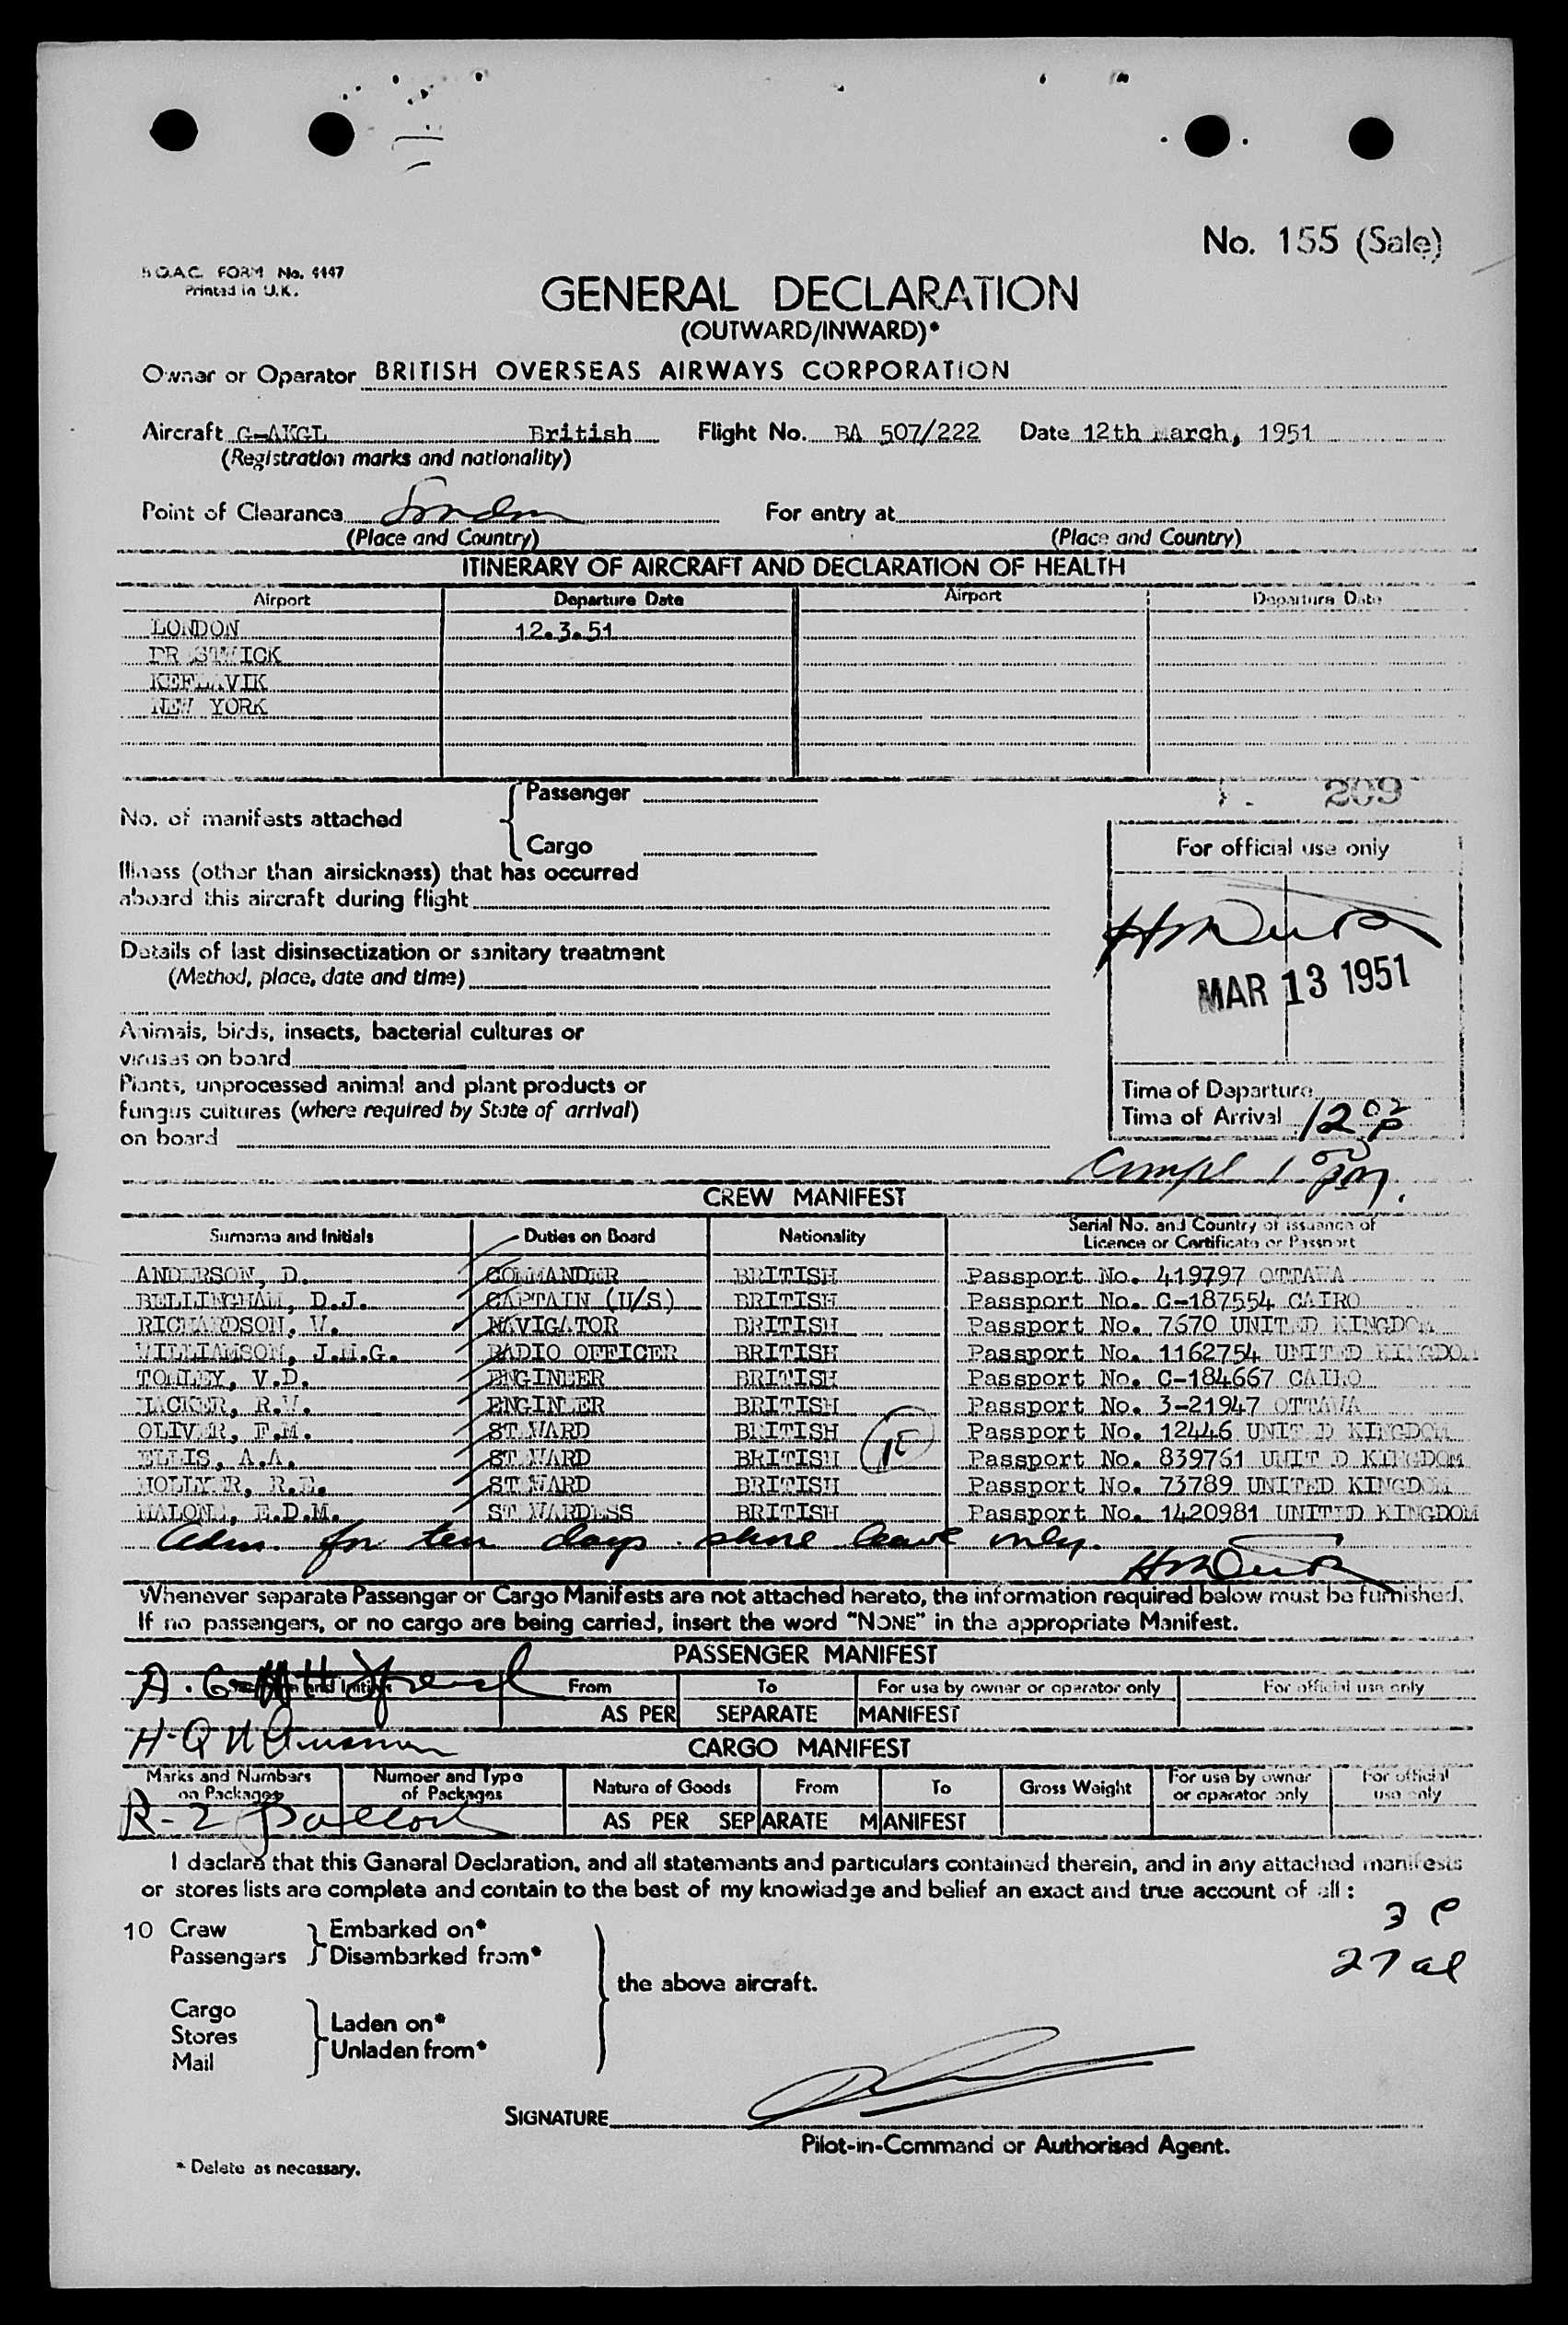 No. 155 (Sale)
B.O.A.C. FORM No. 4447
Printed in U.K.
GENERAL DECLARATION
(OUTWARD/INWARD)*
Owner or Operator BRITISH OVERSEAS AIRWAYS CORPORATION
Aircraft G-AKGL British Flight No. BA 507/222 Date 12th March, 1951
(Registration marks and nationality)
Point of Clearance London For entry at
(Place and Country) (Place and Country)
ITINERARY OF AIRCRAFT AND DECLARATION OF HEALTH
Airport Departure Date Airport Departure Date
LONDON 12.3.51
PRESTWICK
KEFLAVIK
NEW YORK
209
Passenger
No. of manifests attached
Cargo
For official use only
Illness (other than airsickness) that has occurred
aboard this aircraft during flight
Details of last disinsectization or sanitary treatment
(Method, place, date and time)
MAR 13 1951
Animals, birds, insects, bacterial cultures or
viruses on board
Plants, unprocessed animal and plant products or
fungus cultures (where required by State of arrival)
on board
Time of Departure
Time of Arrival 12 02 P
Compl 1 00 PM.
CREW MANIFEST
Surname and Initials Duties on Board Nationality Serial No. and Country of issuance of Licence or Certificate or Passport
ANDERSON, D. COMMANDER BRITISH Passport No. 419797 OTTAWA
BELLINGHAM, D.J. CAPTAIN (U/S) BRITISH Passport No. C-187554 CAIRO
RICHARDSON, V. NAVIGATOR BRITISH Passport No. 7670 UNITED KINGDOM
WILLIAMSON, J.M.G. RADIO OFFICER BRITISH Passport No. 1162754 UNITED KINGDOM
TOMLEY, V.D. ENGINEER BRITISH Passport No. C-184667 CAIRO
R.V. ENGINEER BRITISH Passport No. 3-21947 OTTAWA
OLIVER, F.M. STEWARD BRITISH Passport No. 12446 UNITED KINGDOM
ELLIS, A.A. STEWARD BRITISH Passport No. 839761 UNITED KINGDOM
STEWARD BRITISH Passport No. 73789 UNITED KINGDOM
MALONE, E.D.M. STEWARDESS BRITISH Passport No. 1420981 UNITED KINGDOM
Adm. for ten days shore leave only.
Whenever separate Passenger or Cargo Manifests are not attached hereto, the information required below must be furnished.
If no passengers, or no cargo are being carried, insert the word "NONE" in the appropriate Manifest.
PASSENGER MANIFEST
and Initials From To For use by owner or operator only For official use only
AS PER SEPARATE MANIFEST
CARGO MANIFEST
Marks and Numbers on Packages Number and Type of Packages Nature of Goods From To Gross Weight For use by owner or operator only For official use only
AS PER SEPARATE MANIFEST
I declare that this General Declaration, and all statements and particulars contained therein, and in any attached manifests
or stores lists are complete and contain to the best of my knowledge and belief an exact and true account of all :
10 Crew Embarked on*
Passengers Disembarked from*
3 C
27 al
the above aircraft.
Cargo
Stores Laden on*
Mail Unladen from*
SIGNATURE
Pilot-in-Command or Authorised Agent.
* Delete as necessary.